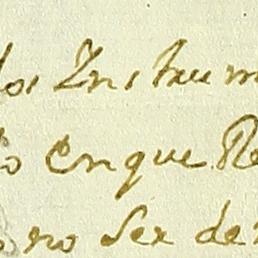 los Instrum
o en que Re
no ser de